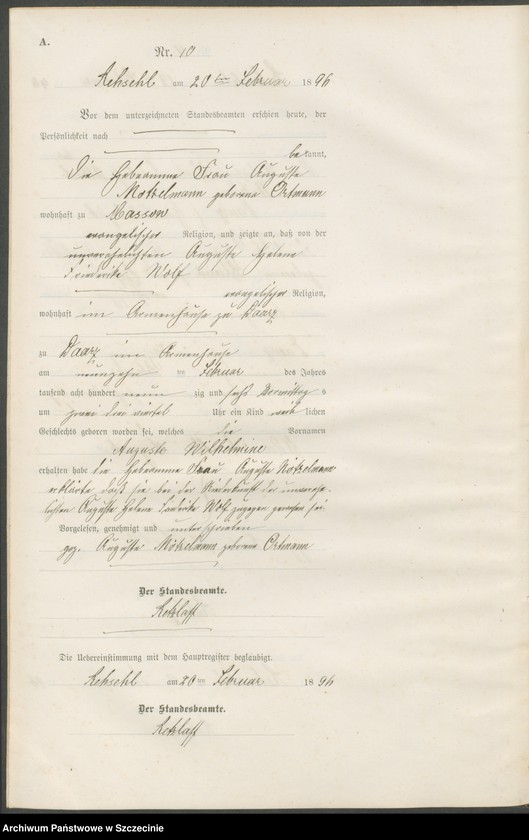 A.
Nr. 10
Rehsehl am 20ten Februar 1896
Vor dem unterzeichneten Standesbeamten erschien heute, der
Persönlichkeit nach
bekannt,
die Hebeamme Frau Auguste
Nötzelmann geborene Ortmann
wohnhaft zu Massow
evangelischer Religion, und zeigte an, daß von der
unverehelichten Auguste Helene
Friederike Wolf
evangelischer Religion,
wohnhaft im Armenhause zu Daarz
zu Daarz im Armenhause
am neunzehn ten Februar des Jahres
tausend acht hundert neun zig und sechs Vormittag s
um zwei drei viertel Uhr ein Kind weib lichen
Geschlechts geboren worden sei, welches die Vornamen
Auguste Wilhelmine
erhalten habe die Hebeamme Frau Auguste Nötzelmann
erklärte, daß sie bei der Niederkunft der unverehe-
lichten Auguste Helene Friederike Wolf zugegen gewesen sei.
Vorgelesen, genehmigt und unterschrieben
gez. Auguste Nötzelmann geborene Ortmann
Der Standesbeamte.
Die Uebereinstimmung mit dem Hauptregister beglaubigt.
Rehsehl am 20ten Februar 1896
Der Standesbeamte.
Archiwum Państwowe w Szczecinie